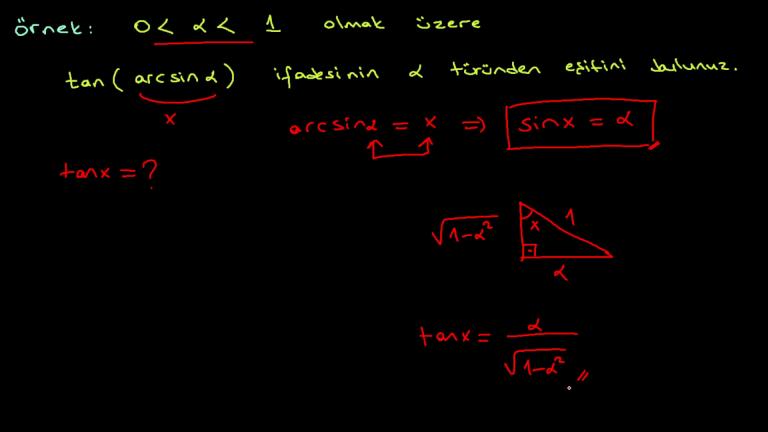 örnek: 0 < α < 1 olmak üzere
tan(arcsin α) ifadesinin α türünden eşitini bulunuz.
x
arcsinα = x ⇒ sinx = α
tanx = ?
√1-α² x 1
α
tanx = α/√1-α² //